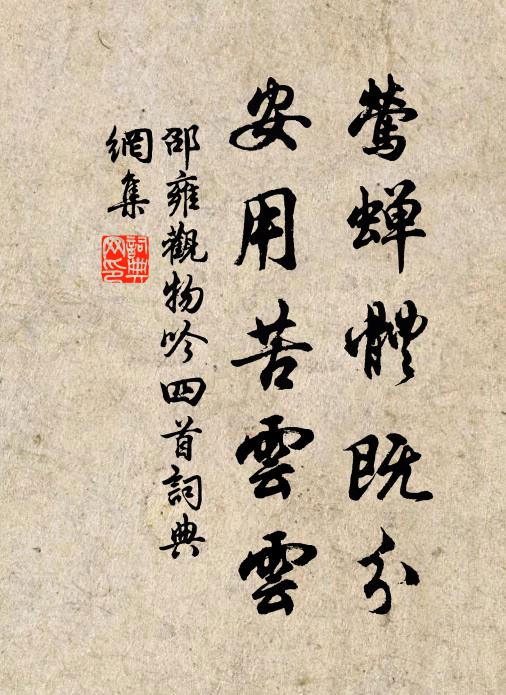 鶯蟬體既分
安用苦雲雲
邵雍觀物吟四首詞典
網集
詞典網印